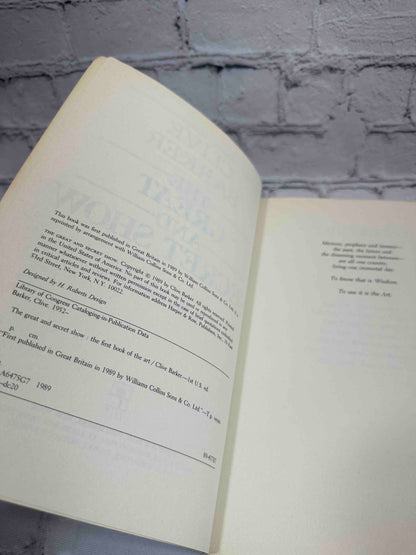 This book was first published in Great Britain in 1989 by William Collins Sons & Co. Ltd. It is
reprinted by arrangement with William Collins Sons & Co. Ltd.
THE GREAT AND SECRET SHOW. Copyright © 1989 by Clive Barker. All rights reserved. Printed
in the United States of America. No part of this book may be used or reproduced in any
manner whatsoever without written permission except in the case of brief quotations embodied in
critical articles and reviews. For information address Harper & Row, Publishers, Inc., 10 East
53rd Street, New York, N.Y. 10022.
Designed by H. Roberts Design
Library of Congress Cataloging-in-Publication Data
Barker, Clive, 1952–
The great and secret show : the first book of the art / Clive Barker.—1st U.S. ed.
p. cm.
"First published in Great Britain in 1989 by William Collins Sons & Co. Ltd."—T.p. verso.
A6475G7 1989
–dc20
Memory, prophecy and fantasy—
the past, the future and
the dreaming moment between—
are all one country,
living one immortal day.
To know that is Wisdom.
To use it is the Art.